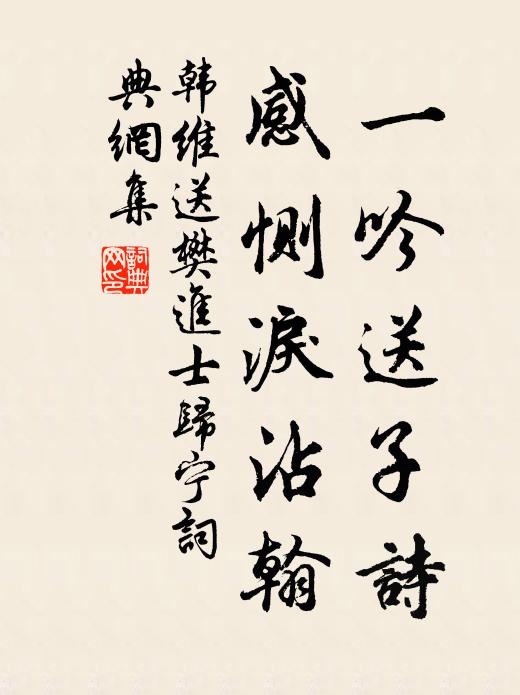 一吟送子詩
感惻淚沾翰
韩維送樊進士歸宁詞
典網集
詞典
网印